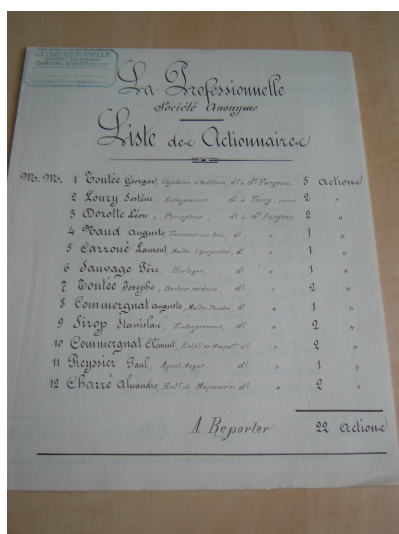 LA PROFESSIONNELLE
La Professionnelle
Société Anonyme
Liste des Actionnaires
M.M. 1 Toutée Georges, Capitaine d'Artillerie, dt à St Fargeau 5 actions
2 Loury Sostène, Entrepreneur dt à Toucy 2 "
3 Dorotte Léon, Percepteur, dt à St Fargeau 2 "
4 Naud Auguste, Tourneur sur bois, dt " 1 "
5 Carroué Laurent, Maître Charpentier, dt " 1 "
6 Sauvage Père, Horloger, dt " 1 "
7 Toutée Josephe, Docteur médecin, dt " 2 "
8 Commergnat Auguste, Maître Peintre, dt " 1 "
9 Sirop Stanislas, Entrepreneur, dt " 2 "
10 Commergnat Clément, Entpr de Maçonrie dt " 2 "
11 Reyssier Paul, Agent Voyer, dt " 1 "
12 Charré Alexandre, Entpr de Maçonnerie dt " 2 "
A Reporter 22 actions